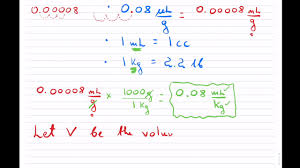 0.0.00008 • 0.08 µL/g = 0.00008 mL/g
• 1 mL = 1 cc
• 1 kg = 2.2 lb
0.00008 mL/g × 1000g/1 kg = 0.08 mL/kg
Let V be the value